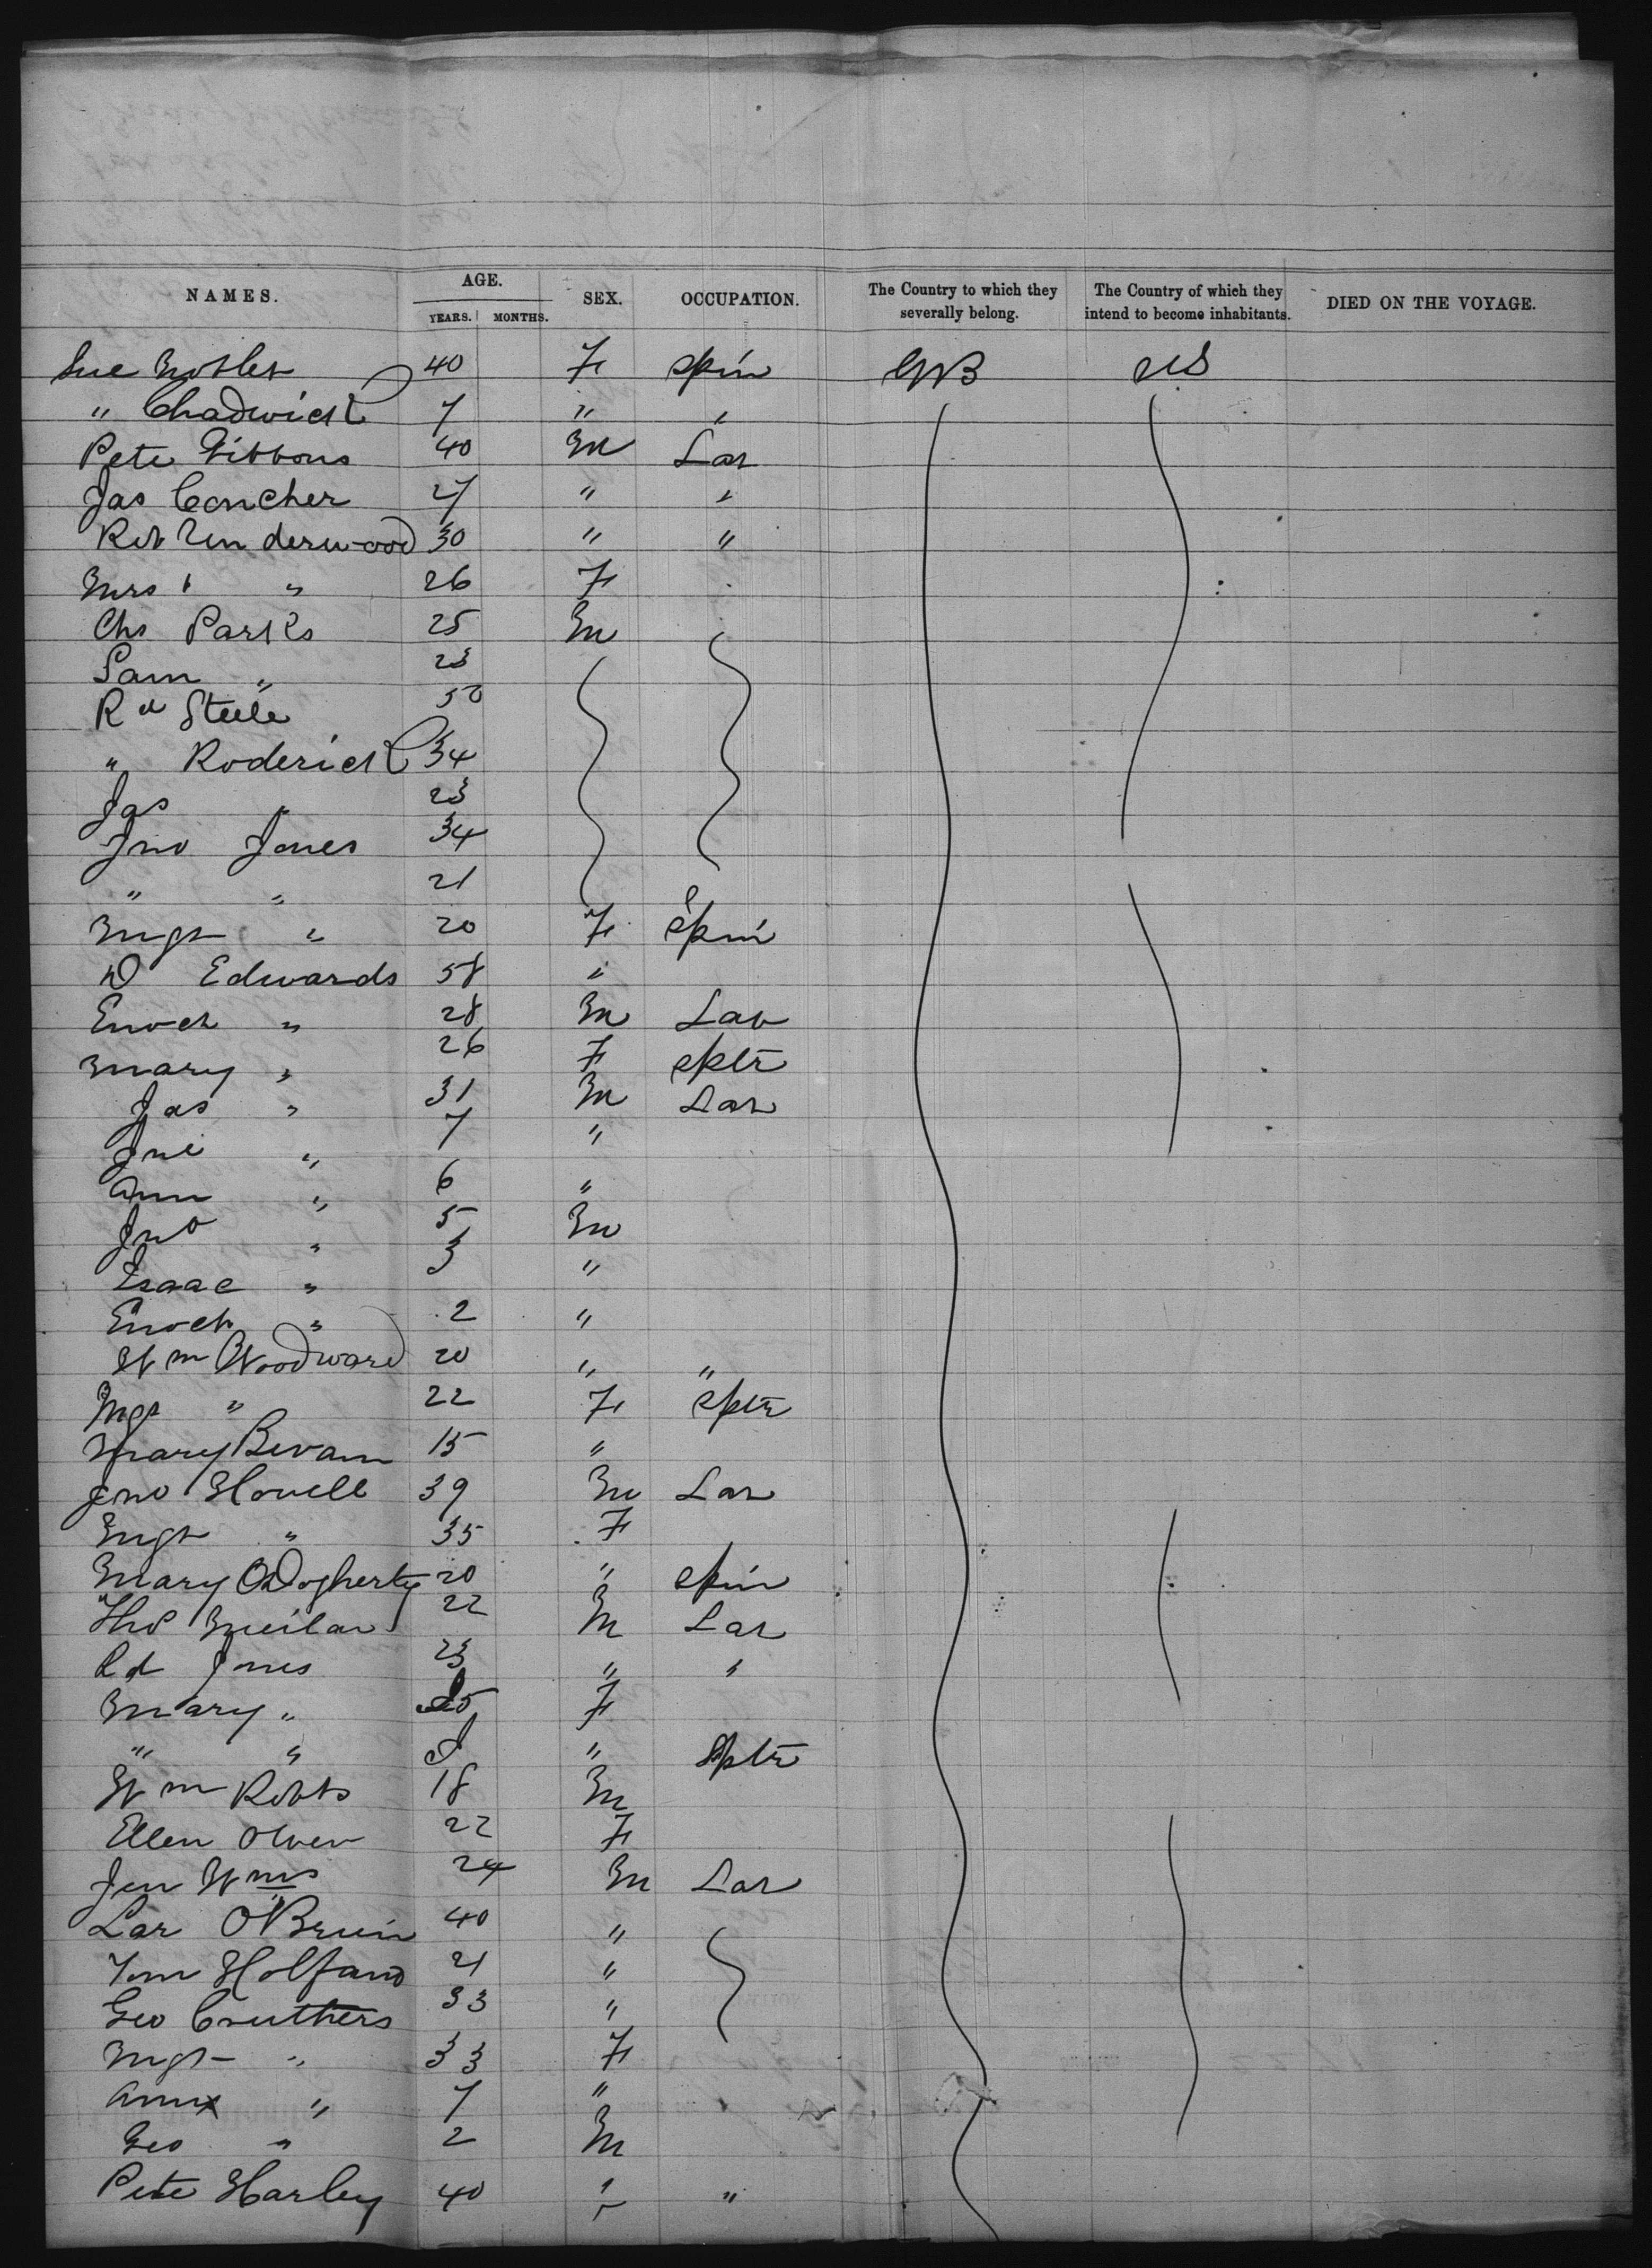 NAMES. AGE. SEX. OCCUPATION. The Country to which they severally belong. The Country of which they intend to become inhabitants. DIED ON THE VOYAGE.
YEARS. MONTHS.
Sue 40 F Spin GB US
" Chadwick 7 " "
Pete Gibbons 40 M Lar
Jas Concher 27 " "
Rob Underwood 30 " "
Mrs " " 26 F
Chs Parks 25 M
Sam " 23
Rd Steele 50
" Roderick 34
Jas " 23
Jno Jones 34
" " 21
Mgt " 20 F Spin
D Edwards 58 "
Enoch " 28 M Lab
Mary " 26 F Sptr
Jas " 31 M Lar
Jne " 7 "
Ann " 6 "
Jno " 5 M
Isaac " 3 "
Enoch " 2 "
Wm Woodward 20 " "
Mgt " 22 F Sptr
Mary Bevan 15 "
Jno Howell 39 M Lar
Mgt " 35 F
Mary O'Dogherty 20 " Spin
Thos 22 M Lar
Rd Jones 23 " "
Mary " 25 F
" " " Sptr
Wm Robts 18 M
Ellen Owen 22 F
Jen Wms 24 M Lar
Lar O'Brien 40 "
Tom Holfand 21 "
Geo Cruthers 33 "
Mgt " 33 F
Ann " 7 "
Geo " 2 M
Pete Harley 40 " "